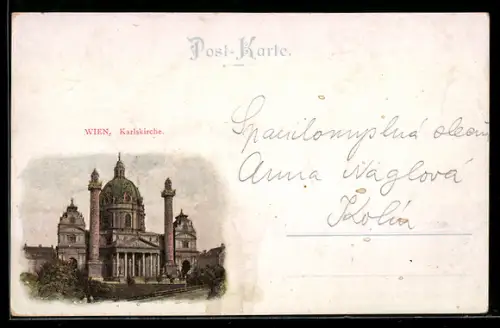 Post-Karte.
WIEN, Karlskirche.
Spanilomyslná slečna
Anna Náglová
Kolín